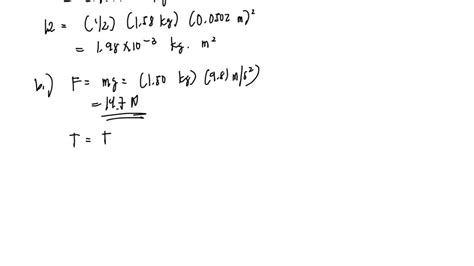 I2 = (1/2) (1.58 kg) (0.0502 m)²
= 1.98 × 10⁻³ kg. m²
b.) F = mg = (1.50 kg) (9.81 m/s²)
= 14.7 N
T = T